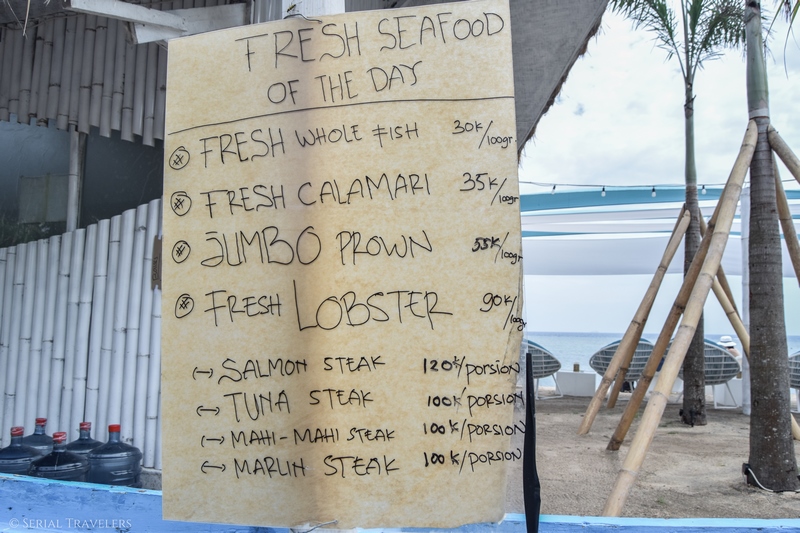 FRESH SEAFOOD
OF THE DAY
FRESH WHOLE FISH 30K/100gr
FRESH CALAMARI 35K/100gr
JUMBO PROWN 55K/100gr
FRESH LOBSTER 90K/100gr
SALMON STEAK 120K/PORSION
TUNA STEAK 100K/PORSION
MAHI-MAHI STEAK 100K/PORSION
MARLIN STEAK 100K/PORSION
© SERIAL TRAVELERS